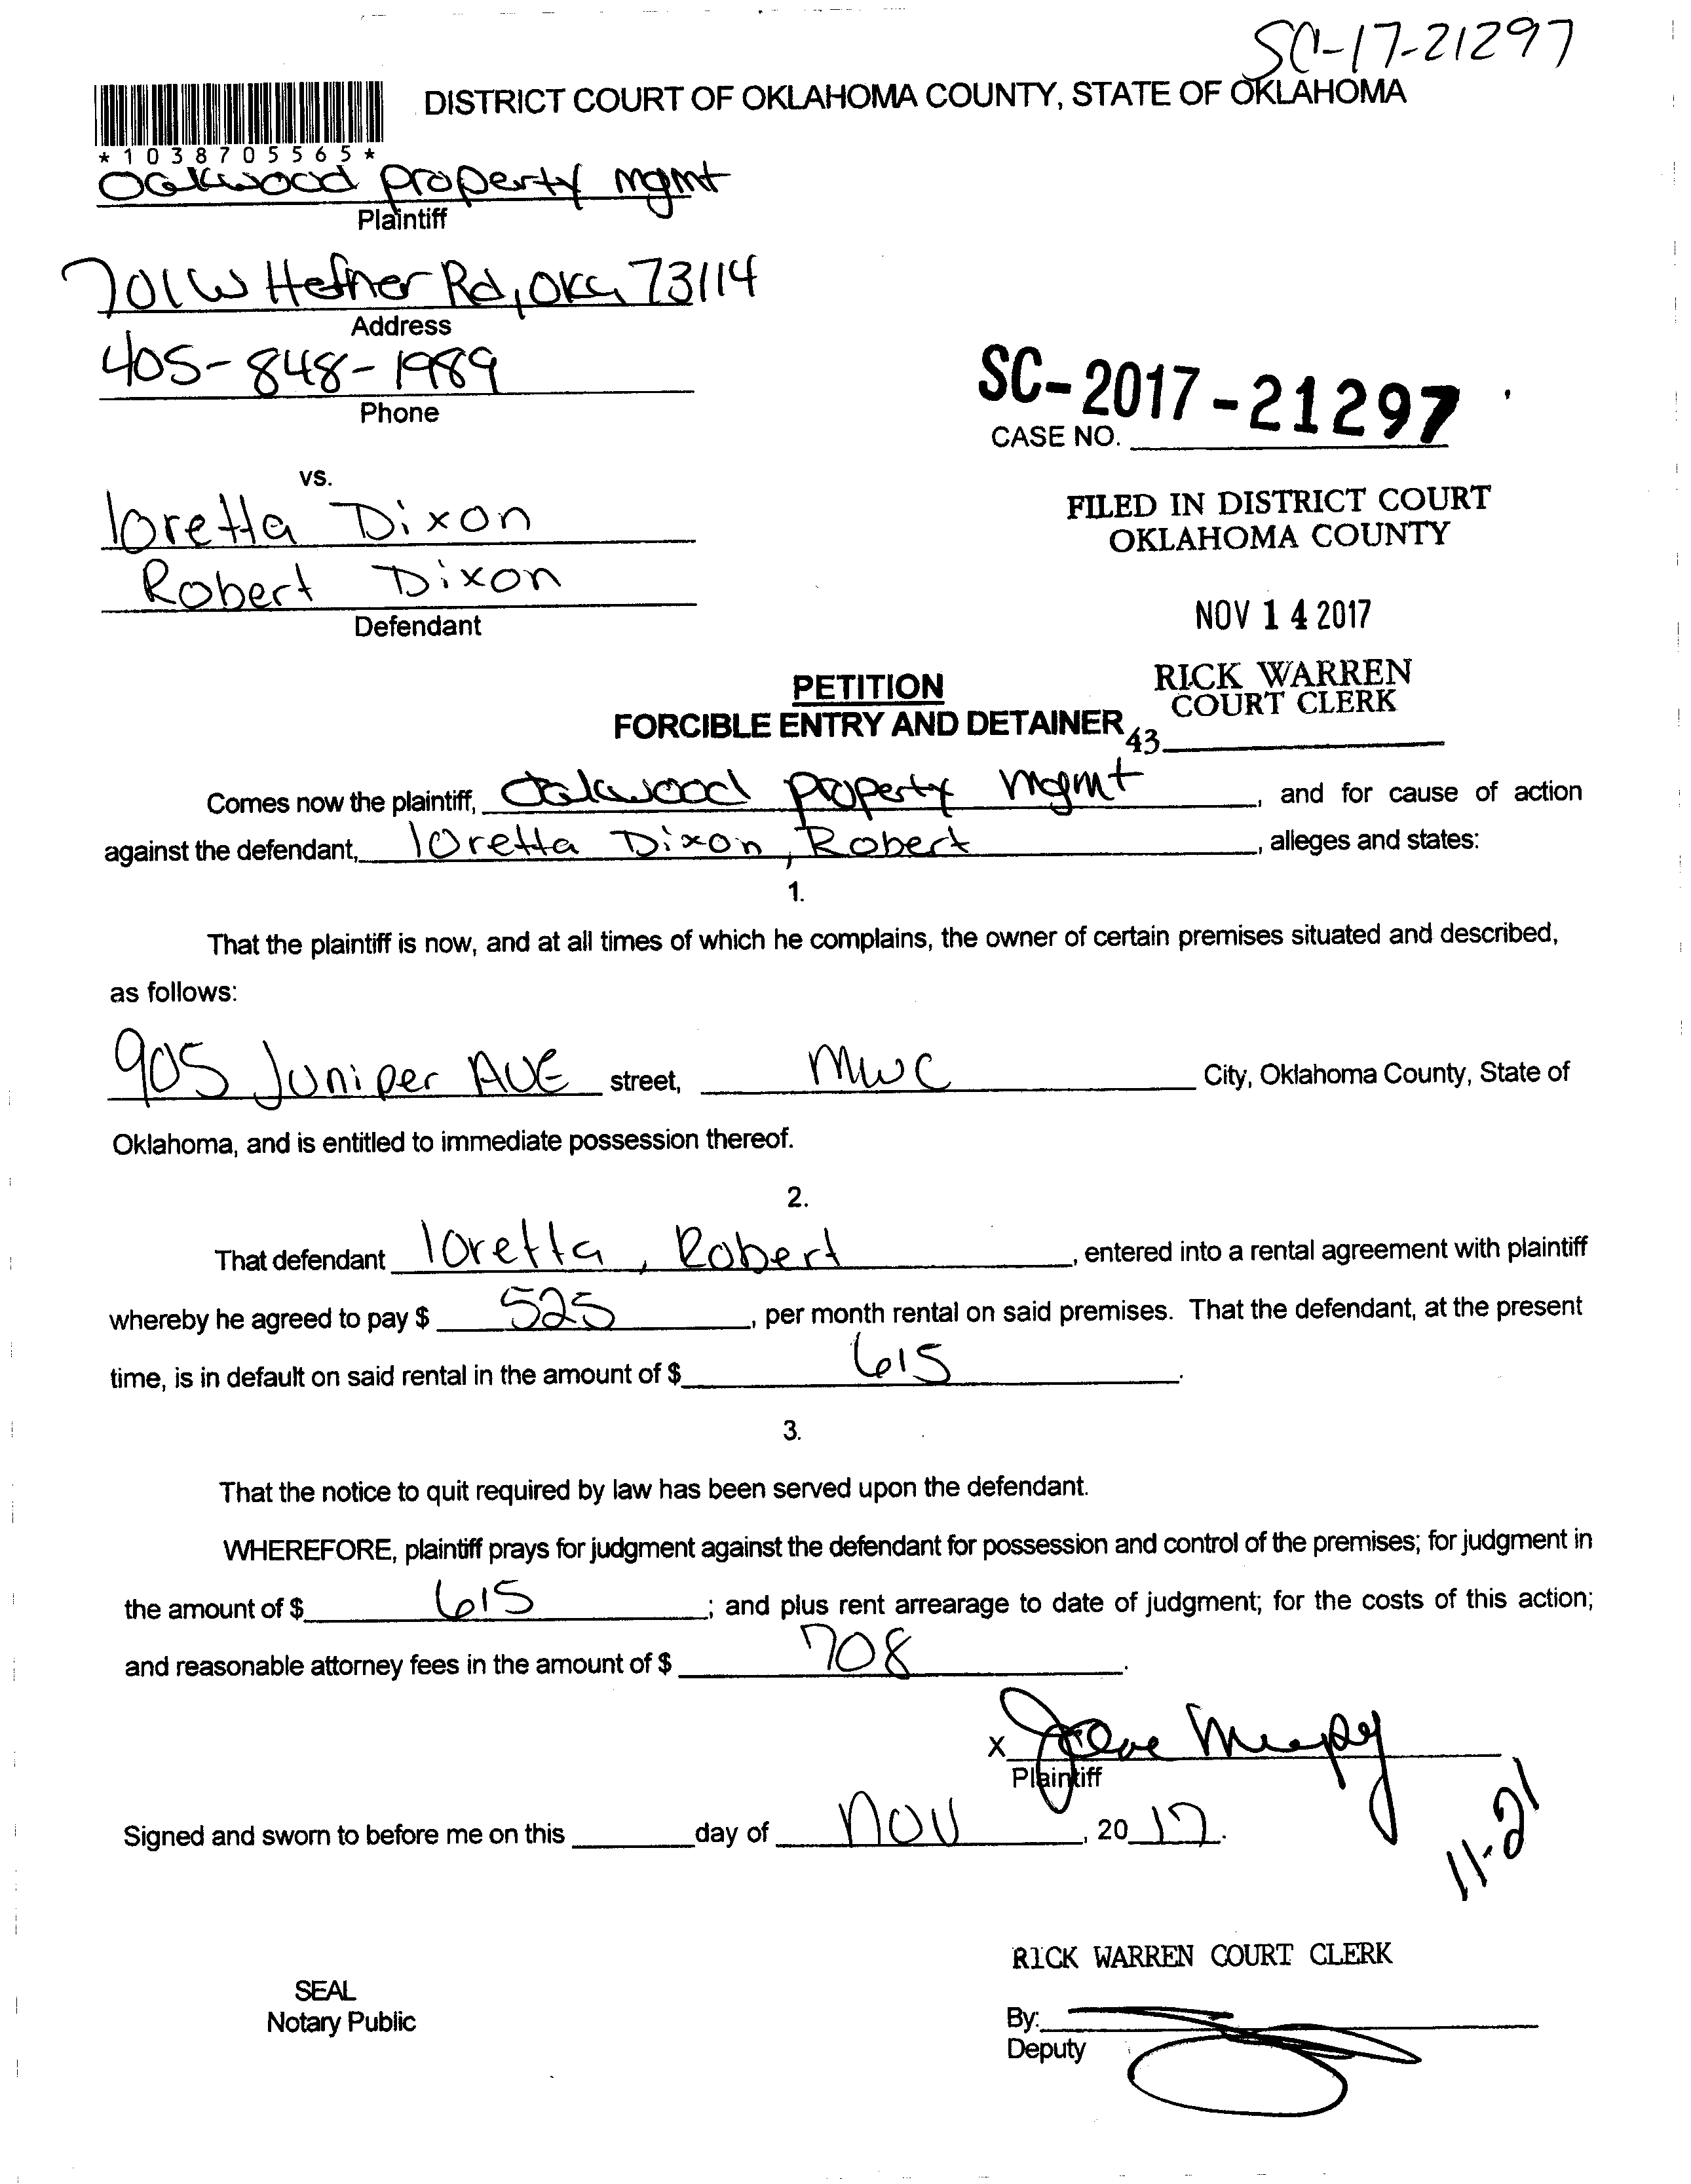 SC-17-21297
DISTRICT COURT OF OKLAHOMA COUNTY, STATE OF OKLAHOMA
*1038705565*
Oakwood property mgmt
Plaintiff
701 W Hefner Rd, OKC, 73114
Address
405-848-1989
Phone
SC-2017-21297
CASE NO.
vs.
loretta Dixon
Robert Dixon
Defendant
FILED IN DISTRICT COURT
OKLAHOMA COUNTY
NOV 14 2017
RICK WARREN
COURT CLERK
43
PETITION
FORCIBLE ENTRY AND DETAINER
Comes now the plaintiff, Oakwood property mgmt, and for cause of action
against the defendant, loretta Dixon, Robert, alleges and states:
1.
That the plaintiff is now, and at all times of which he complains, the owner of certain premises situated and described,
as follows:
905 Juniper AVE street, MWC City, Oklahoma County, State of
Oklahoma, and is entitled to immediate possession thereof.
2.
That defendant loretta, Robert, entered into a rental agreement with plaintiff
whereby he agreed to pay $ 525, per month rental on said premises. That the defendant, at the present
time, is in default on said rental in the amount of $ 615.
3.
That the notice to quit required by law has been served upon the defendant.
WHEREFORE, plaintiff prays for judgment against the defendant for possession and control of the premises; for judgment in
the amount of $ 615; and plus rent arrearage to date of judgment; for the costs of this action;
and reasonable attorney fees in the amount of $ 708.
X
Plaintiff
Signed and sworn to before me on this day of Nov, 20 17.
11-21
RICK WARREN COURT CLERK
SEAL
Notary Public
By:
Deputy